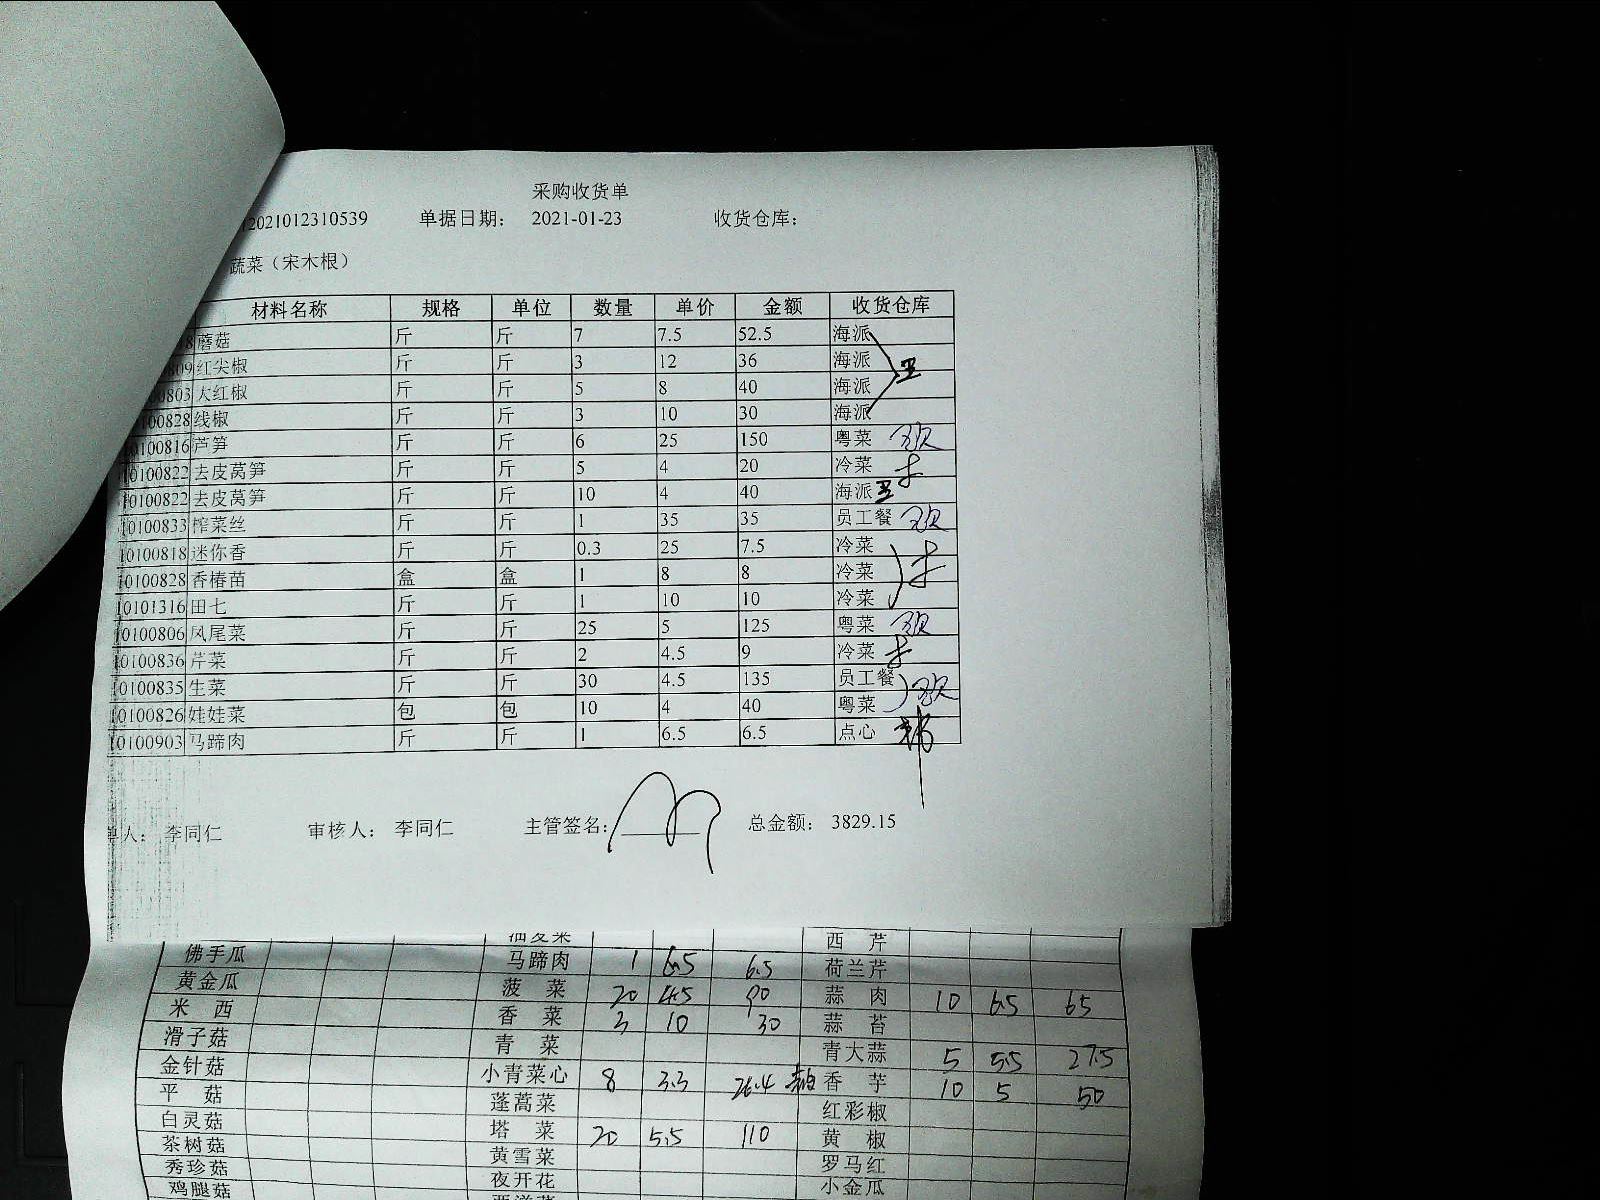 采购收货单
2021012310539 单据日期： 2021-01-23 收货仓库：
蔬菜（宋木根）
材料名称 规格 单位 数量 单价 金额 收货仓库
8 蘑菇 斤 斤 7 7.5 52.5 海派
809 红尖椒 斤 斤 3 12 36 海派
00803 大红椒 斤 斤 5 8 40 海派
100828 线椒 斤 斤 3 10 30 海派
0100816 芦笋 斤 斤 6 25 150 粤菜
10100822 去皮莴笋 斤 斤 5 4 20 冷菜
10100822 去皮莴笋 斤 斤 10 4 40 海派
10100833 榨菜丝 斤 斤 1 35 35 员工餐
10100818 迷你香 斤 斤 0.3 25 7.5 冷菜
10100828 香椿苗 盒 盒 1 8 8 冷菜
10101316 田七 斤 斤 1 10 10 冷菜
10100806 凤尾菜 斤 斤 25 5 125 粤菜
10100836 芹菜 斤 斤 2 4.5 9 冷菜
10100835 生菜 斤 斤 30 4.5 135 员工餐
10100826 娃娃菜 包 包 10 4 40 粤菜
10100903 马蹄肉 斤 斤 1 6.5 6.5 点心
单人： 李同仁 审核人： 李同仁 主管签名： 总金额： 3829.15
油麦菜 西 芹
佛手瓜 马蹄肉 1 6.5 6.5 荷兰芹
黄金瓜 菠 菜 20 4.5 90 蒜 肉 10 6.5 65
米 西 香 菜 3 10 30 蒜 苔
滑子菇 青 菜 青大蒜 5 5.5 27.5
金针菇 小青菜心 8 3.3 26.4 香 芋 10 5 50
平 菇 蓬蒿菜 红彩椒
白灵菇 塔 菜 20 5.5 110 黄 椒
茶树菇 黄雪菜 罗马红
秀珍菇 夜开花 小金瓜
鸡腿菇